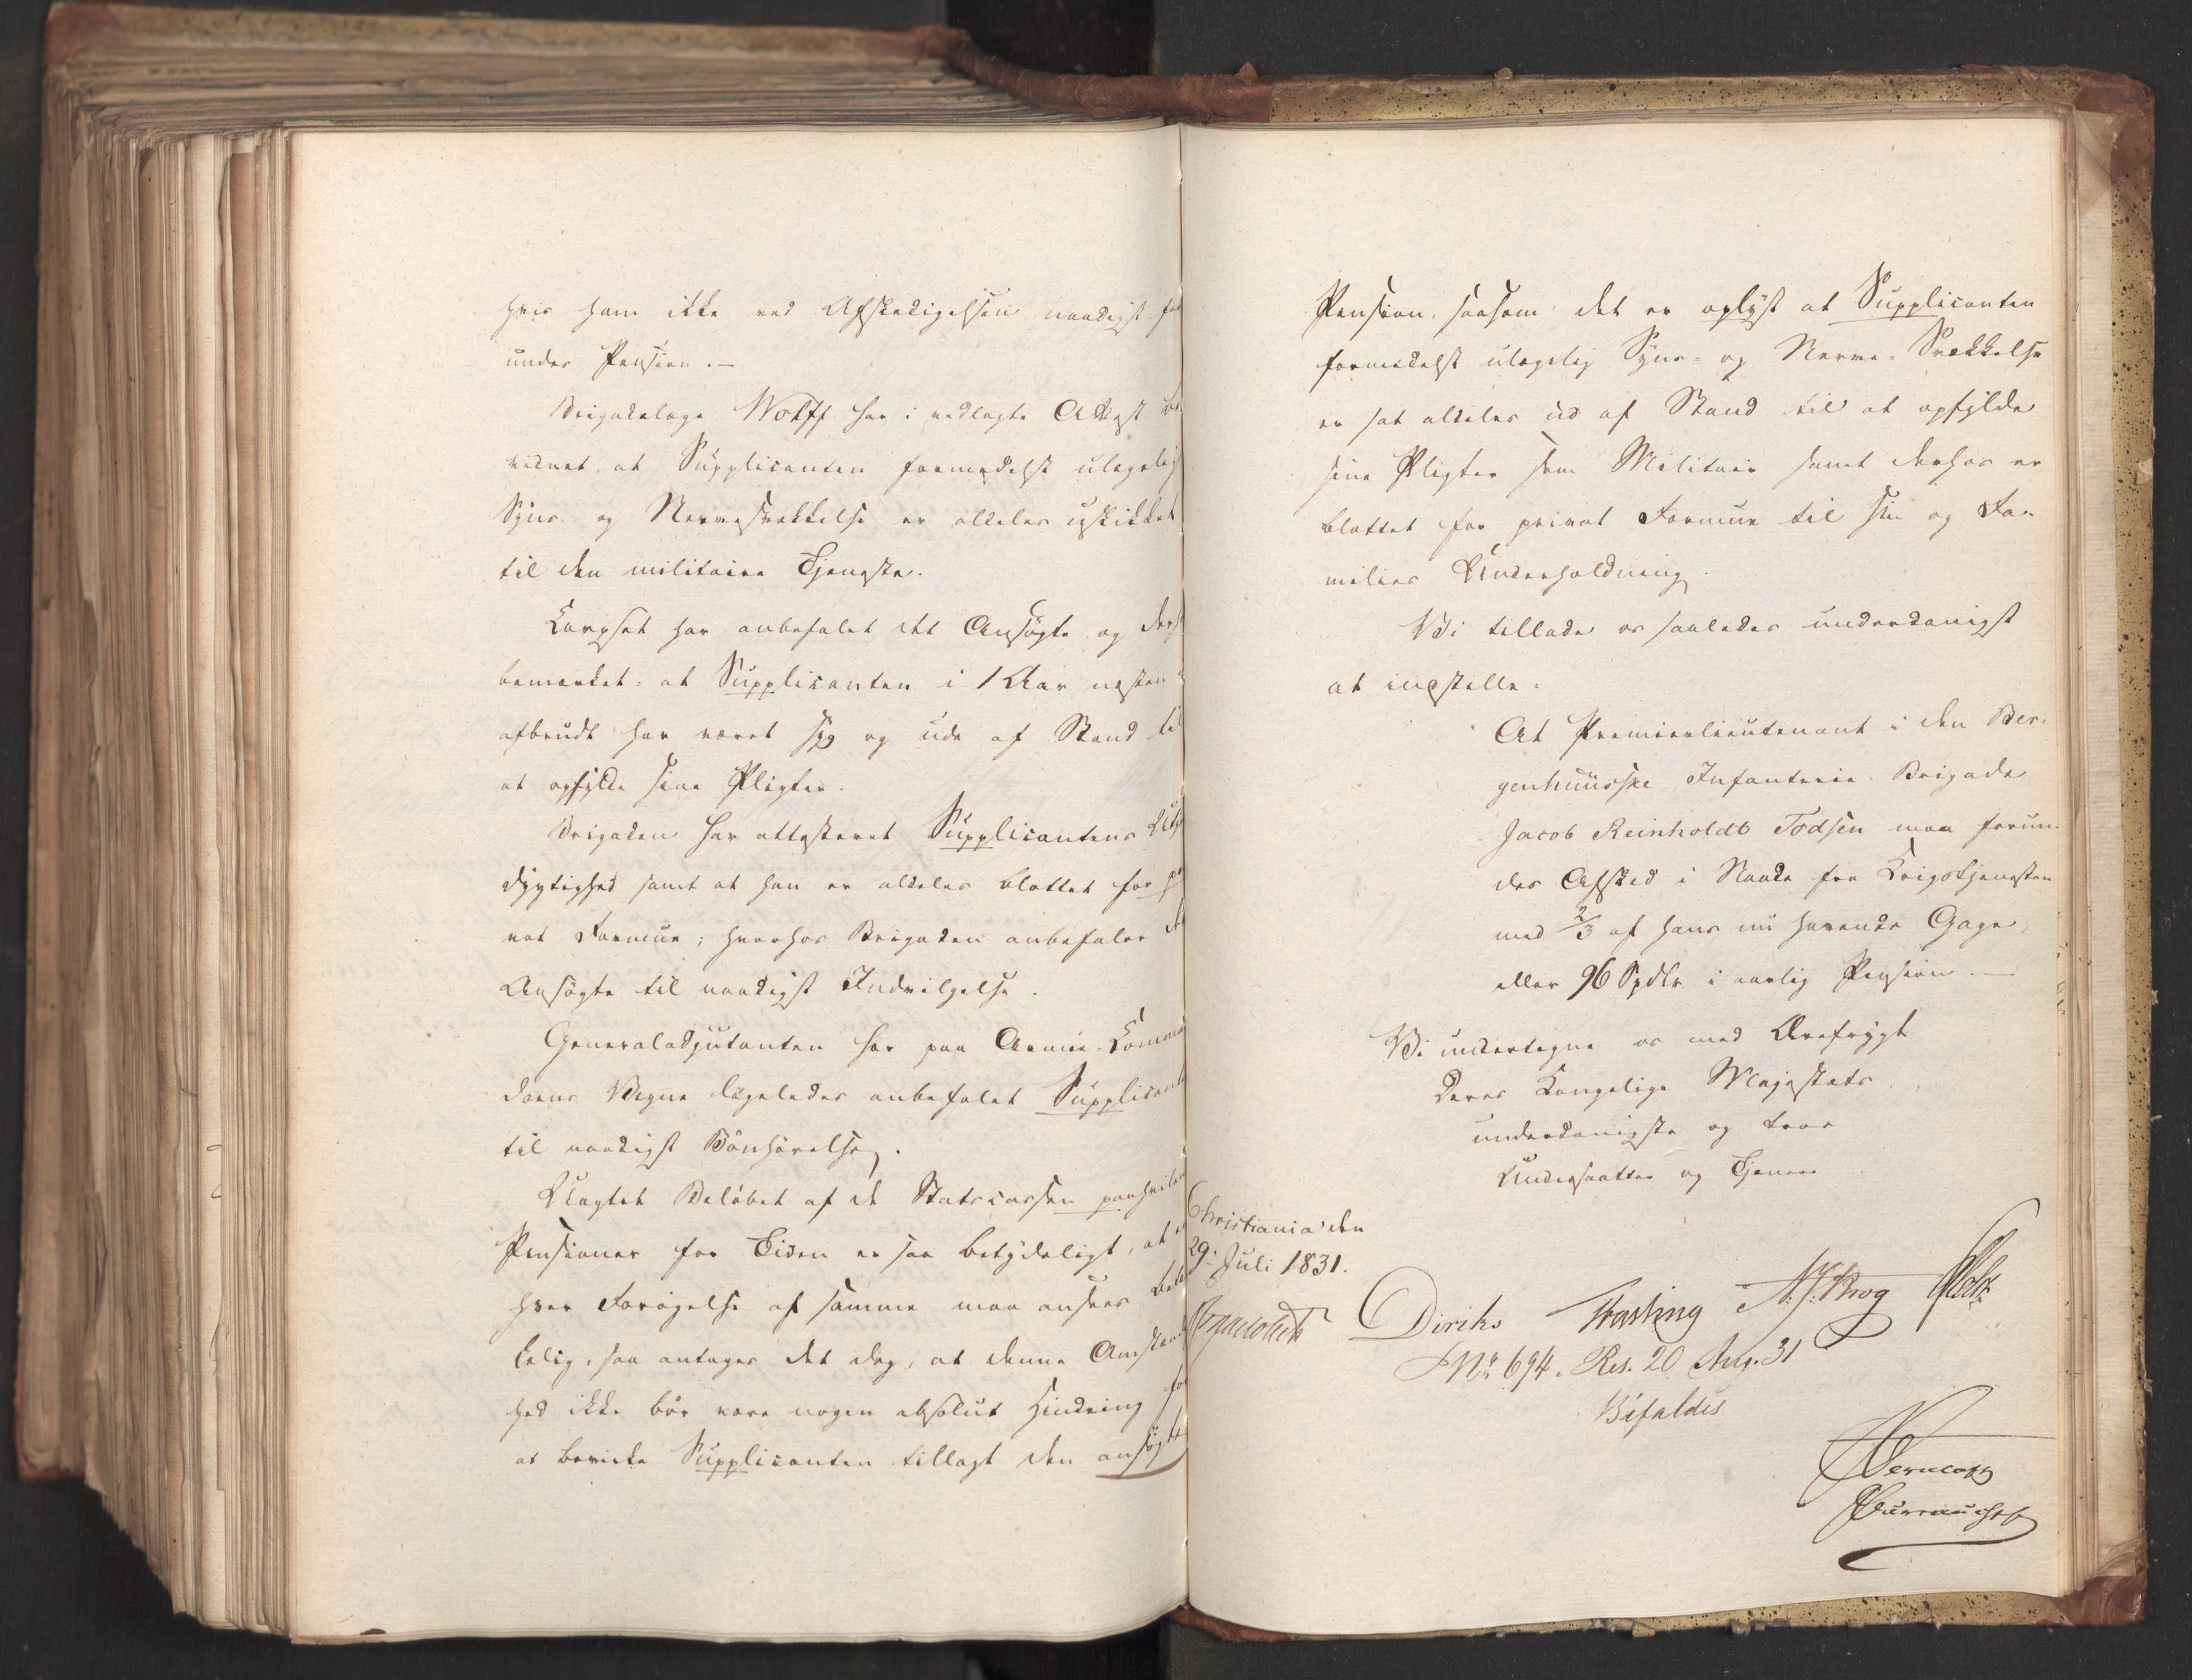 hvis ham ikke ved Afskedigelsen naadigst for
undes Pension.—
Brigadelæge Wolff har i vedlagte Attest be-
vidnet, at Supplicanten formedelst ulægelig
Syns og Nervesvækkelse er aldeles uskikket
til den militaire Tjeneste.
Corpset har anbefalet det Ansøgte og derh
bemærket: at Supplicanten i 1 Aar næsten
afbrudt har været syg og ude af Stand til
at opfylde sine Pligter.
Brigaden har attesteret Supplicantens Utj
dygtighed samt at han er aldeles blottet for pr
vat Formue; hvorhos Brigaden anbefaler det
Ansøgte til naadigst Indvilgelse.
Generaladjutanten har paa Armee-Comman
doens Vegne ligeledes anbefalet Supplicant
til naadigst Bönhörelse.
Uagtet Belöbet af de Statscassen paahvilen
Pensioner for Tiden er saa betydeligt, at e
hver Forögelse af samme maa ansees betæ
kelig, saa antages det dog, at denne Omstæn
hed ikke bör være nogen absolut Hindring for
at bevirke Supplicanten tillagt den ansögte
Pension, saasom det er oplyst at Supplicanten
formedelst ulægelig Syns- og Nerve-Svækkelse
er sat aldeles ud af Stand til at opfylde
sine Pligter som Militair samt derhos er
blottet for privat Formue til sin og Fa-
milies Underholdning.
Vi tillade os saaledes underdanigst
at indstille:
At Premierlieutenant i den Ber-
genhuusske Infanterie-Brigade
Jacob Reinholdt Todsen maa forun-
des Afsked i Naade fra Krigstjenesten
med 2/3 af hans nu havende Gage,
eller 96 Spdlr i aarlig Pension.—
Vi undertegne os med Ærefrygt
Deres Kongelige Majestæts
underdanigste og troe
Undersaatter og Tjenere
Christiania den
29. Juli 1831.
Diriks Fasting N. J. Krog Holst
No 694. Res. 20 Aug. 31
Bifaldes